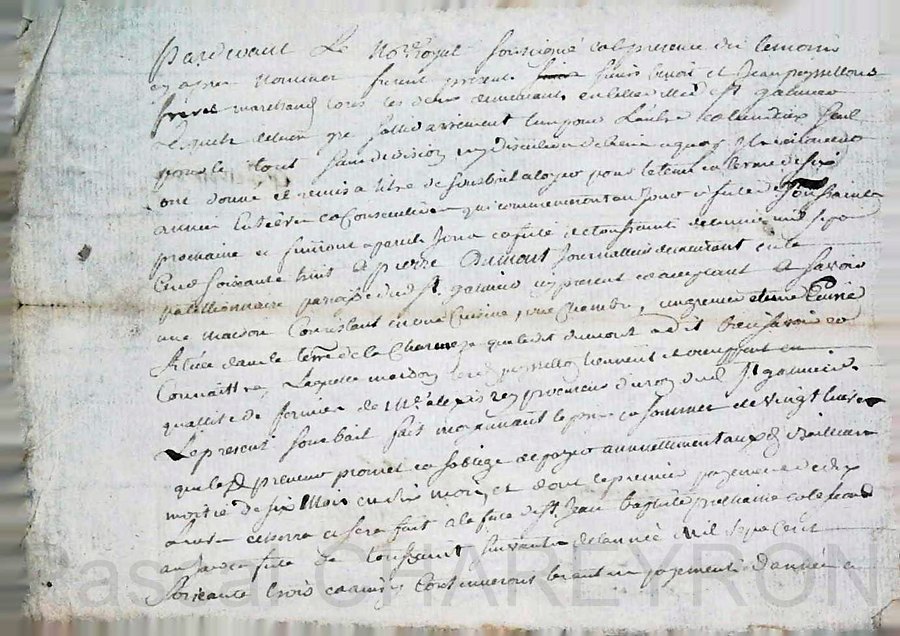 Pardevant Le No.re Royal soussigné et en presence des temoins
cy apres nommes furent présens Louis benoit et Jean peyssellons
freres marchand tous les deux demeurant en la ville de St galmier
Lesquels de leur gre sollidairement l'un pour L'autre et un d'eux seul
pour le tout sans division ny discution de biens a quoy ils renoncent
ont donné et remis a titre de sousbail a loyer pour le tems et terme de six
année Entieres et Consecutives qui commenceront au jour et feste de Toussaints
prochaine et finiront a pareil Jour et feste de toussaints de l'année mil sept
Cens soixante huit à pierre Dumont Journallier demeurant en la
parroisse dud St galmier icy present et acceptant A Savoir
une maison Consistant en une Cuisine, une Chambre, un grenier et une Ecurie
Située dans la terre de la Charmeza que led dumont a dit bien savoir et
Connaitre Laquelle maison lesd peyssellon tiennent et occuppent en
quallité de fermier de Mr alexis reymond dud St galmier.
Le present sousbail fait moyennant le prix et somme de vingt livres
que led preneur promet et s'oblige de payer annuellement auxd Bailleurs
moitié de six Mois en six mois, et dont le premier payement de dix
livres et sera fait a la feste de St. Jean Baptiste prochaine et le second
au jour et feste de toussaint suivante de l'année Mil sept Cent
Soixante trois et ainsy Continueront lesdits payements d'année en
Pascal CHAREYRON